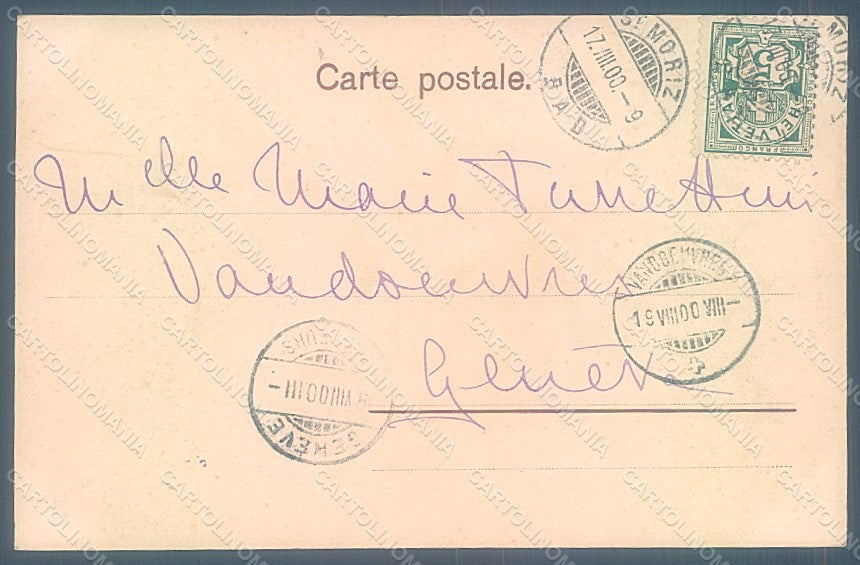 Carte postale.
ST MORIZ
17.VIII.00.-9
BAD
5
HELVETIA
FRANCO
Mlle Marie Turrettini
Vandoeuvres
Genève
VANDOEUVRES
19 VIII 00 VIII
GENÈVE
VIII 00 III
CARTOLINOMANIA